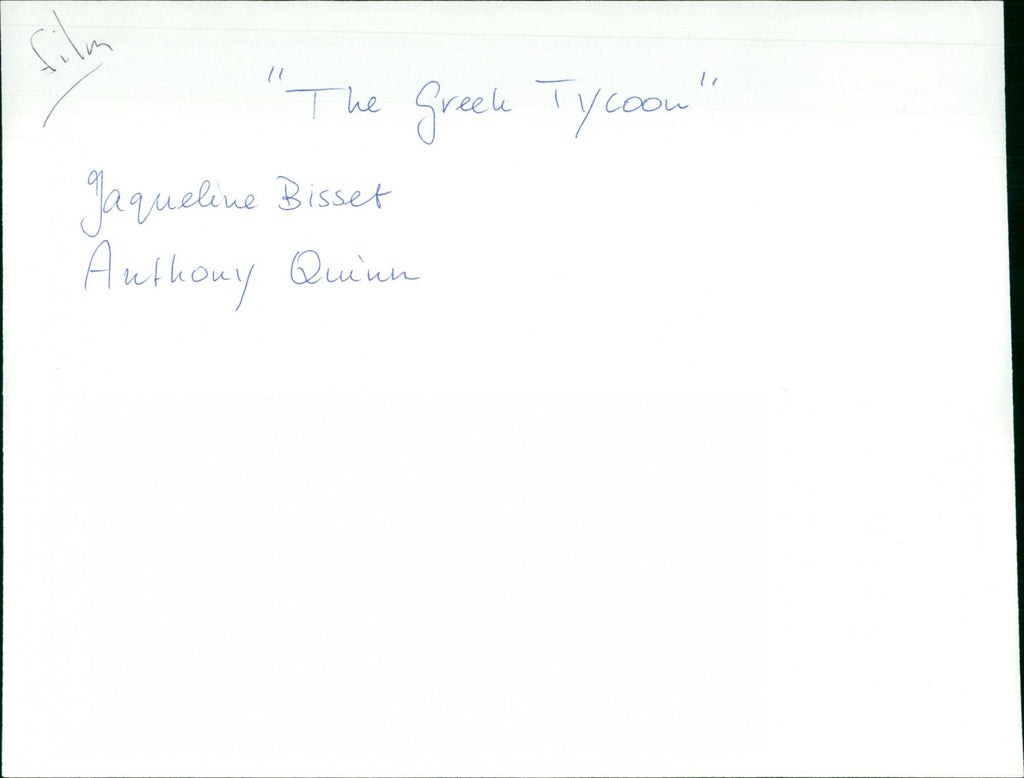 film
"The Greek Tycoon"
Jaqueline Bisset
Anthony Quinn